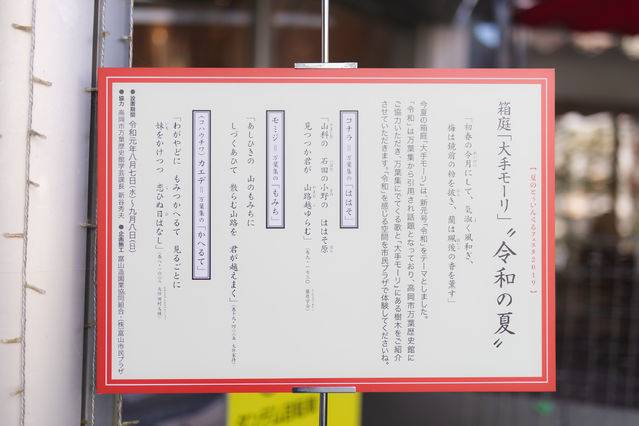 【夏のとやいんぐるフェスタ2019】
箱庭「大手モーリ」〝令和の夏〟
「初春の令月にして、気淑く風和ぎ、
梅は鏡前の粉を披き、蘭は珮後の香を薫す」
今夏の箱庭「大手モーリ」は、新元号「令和」をテーマとしました。
「令和」は万葉集から引用され話題となっており、高岡市万葉歴史館に
ご協力いただき、万葉集にでてくる歌と「大手モーリ」にある樹木をご紹介
させていただきます。「令和」を感じる空間を市民プラザで体験してくださいね。
コナラ=万葉集の「ははそ」
「山科の 石田の小野の ははそ原
見つつか君が 山路越ゆらむ」
モミジ=万葉集の「もみち」
「あしひきの 山のもみちに
しづくあひて 散らむ山路を 君が越えまく」
(コハウチワ)カエデ=万葉集の「かへるて」
「わがやどに もみつかへるて 見るごとに
妹をかけつつ 恋ひぬ日はなし」
●設置期間 令和元年八月七日(水)~九月八日(日)
●協力 高岡市万葉歴史館学芸課長 新谷秀夫 ●企画施工 富山造園業協同組合・(株)富山市民プラザ